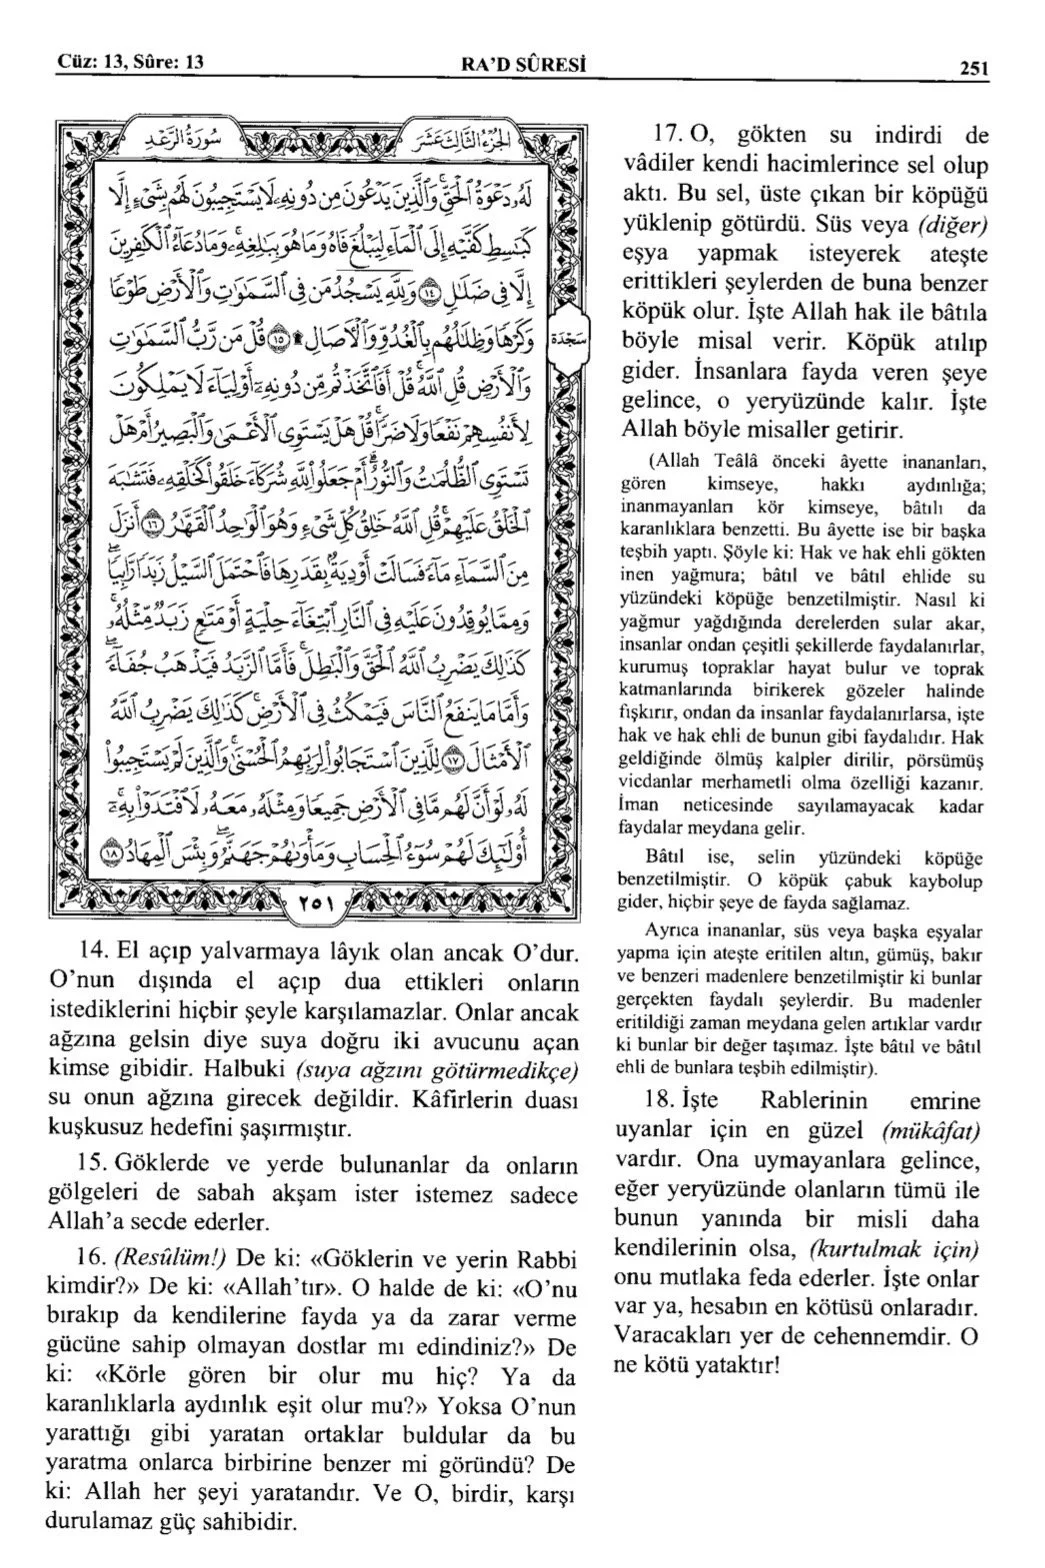 Cüz: 13, Sûre: 13
RA’D SÛRESİ
251
سُورَةُ الرَّعْدِ
الجُزْءُ الثَّالِثَ عَشَرَ
لَهُۥ دَعْوَةُ ٱلْحَقِّ ۖ وَٱلَّذِينَ يَدْعُونَ مِن دُونِهِۦ لَا يَسْتَجِيبُونَ لَهُم بِشَىْءٍ إِلَّا
كَبَٰسِطِ كَفَّيْهِ إِلَى ٱلْمَآءِ لِيَبْلُغَ فَاهُ وَمَا هُوَ بِبَٰلِغِهِۦ ۚ وَمَا دُعَآءُ ٱلْكَٰفِرِينَ
إِلَّا فِى ضَلَٰلٍ ۝١٤ وَلِلَّهِ يَسْجُدُ مَن فِى ٱلسَّمَٰوَٰتِ وَٱلْأَرْضِ طَوْعًا
وَكَرْهًا وَظِلَٰلُهُم بِٱلْغُدُوِّ وَٱلْءَاصَالِ ۩ ۝١٥ قُلْ مَن رَّبُّ ٱلسَّمَٰوَٰتِ
وَٱلْأَرْضِ قُلِ ٱللَّهُ ۚ قُلْ أَفَٱتَّخَذْتُم مِّن دُونِهِۦٓ أَوْلِيَآءَ لَا يَمْلِكُونَ
لِأَنفُسِهِمْ نَفْعًا وَلَا ضَرًّا ۚ قُلْ هَلْ يَسْتَوِى ٱلْأَعْمَىٰ وَٱلْبَصِيرُ أَمْ هَلْ
تَسْتَوِى ٱلظُّلُمَٰتُ وَٱلنُّورُ ۗ أَمْ جَعَلُوا۟ لِلَّهِ شُرَكَآءَ خَلَقُوا۟ كَخَلْقِهِۦ فَتَشَٰبَهَ
ٱلْخَلْقُ عَلَيْهِمْ ۚ قُلِ ٱللَّهُ خَٰلِقُ كُلِّ شَىْءٍ وَهُوَ ٱلْوَٰحِدُ ٱلْقَهَّٰرُ ۝١٦ أَنزَلَ
مِنَ ٱلسَّمَآءِ مَآءً فَسَالَتْ أَوْدِيَةٌۢ بِقَدَرِهَا فَٱحْتَمَلَ ٱلسَّيْلُ زَبَدًا رَّابِيًا ۚ
وَمِمَّا يُوقِدُونَ عَلَيْهِ فِى ٱلنَّارِ ٱبْتِغَآءَ حِلْيَةٍ أَوْ مَتَٰعٍ زَبَدٌ مِّثْلُهُۥ ۚ
كَذَٰلِكَ يَضْرِبُ ٱللَّهُ ٱلْحَقَّ وَٱلْبَٰطِلَ ۚ فَأَمَّا ٱلزَّبَدُ فَيَذْهَبُ جُفَآءً ۖ
وَأَمَّا مَا يَنفَعُ ٱلنَّاسَ فَيَمْكُثُ فِى ٱلْأَرْضِ ۚ كَذَٰلِكَ يَضْرِبُ ٱللَّهُ
ٱلْأَمْثَالَ ۝١٧ لِلَّذِينَ ٱسْتَجَابُوا۟ لِرَبِّهِمُ ٱلْحُسْنَىٰ ۚ وَٱلَّذِينَ لَمْ يَسْتَجِيبُوا۟
لَهُۥ لَوْ أَنَّ لَهُم مَّا فِى ٱلْأَرْضِ جَمِيعًا وَمِثْلَهُۥ مَعَهُۥ لَٱفْتَدَوْا۟ بِهِۦٓ ۚ
أُو۟لَٰٓئِكَ لَهُمْ سُوٓءُ ٱلْحِسَابِ وَمَأْوَىٰهُمْ جَهَنَّمُ ۖ وَبِئْسَ ٱلْمِهَادُ ۝١٨
سَجْدَة
٢٥١
14. El açıp yalvarmaya lâyık olan ancak O’dur.
O’nun dışında el açıp dua ettikleri onların
istediklerini hiçbir şeyle karşılamazlar. Onlar ancak
ağzına gelsin diye suya doğru iki avucunu açan
kimse gibidir. Halbuki (suya ağzını götürmedikçe)
su onun ağzına girecek değildir. Kâfirlerin duası
kuşkusuz hedefini şaşırmıştır.
15. Göklerde ve yerde bulunanlar da onların
gölgeleri de sabah akşam ister istemez sadece
Allah’a secde ederler.
16. (Resûlüm!) De ki: «Göklerin ve yerin Rabbi
kimdir?» De ki: «Allah’tır». O halde de ki: «O’nu
bırakıp da kendilerine fayda ya da zarar verme
gücüne sahip olmayan dostlar mı edindiniz?» De
ki: «Körle gören bir olur mu hiç? Ya da
karanlıklarla aydınlık eşit olur mu?» Yoksa O’nun
yarattığı gibi yaratan ortaklar buldular da bu
yaratma onlarca birbirine benzer mi göründü? De
ki: Allah her şeyi yaratandır. Ve O, birdir, karşı
durulamaz güç sahibidir.
17. O, gökten su indirdi de
vâdiler kendi hacimlerince sel olup
aktı. Bu sel, üste çıkan bir köpüğü
yüklenip götürdü. Süs veya (diğer)
eşya yapmak isteyerek ateşte
erittikleri şeylerden de buna benzer
köpük olur. İşte Allah hak ile bâtıla
böyle misal verir. Köpük atılıp
gider. İnsanlara fayda veren şeye
gelince, o yeryüzünde kalır. İşte
Allah böyle misaller getirir.
(Allah Teâlâ önceki âyette inananları,
gören kimseye, hakkı aydınlığa;
inanmayanları kör kimseye, bâtılı da
karanlıklara benzetti. Bu âyette ise bir başka
teşbih yaptı. Şöyle ki: Hak ve hak ehli gökten
inen yağmura; bâtıl ve bâtıl ehlide su
yüzündeki köpüğe benzetilmiştir. Nasıl ki
yağmur yağdığında derelerden sular akar,
insanlar ondan çeşitli şekillerde faydalanırlar,
kurumuş topraklar hayat bulur ve toprak
katmanlarında birikerek gözeler halinde
fışkırır, ondan da insanlar faydalanırlarsa, işte
hak ve hak ehli de bunun gibi faydalıdır. Hak
geldiğinde ölmüş kalpler dirilir, pörsümüş
vicdanlar merhametli olma özelliği kazanır.
İman neticesinde sayılamayacak kadar
faydalar meydana gelir.
Bâtıl ise, selin yüzündeki köpüğe
benzetilmiştir. O köpük çabuk kaybolup
gider, hiçbir şeye de fayda sağlamaz.
Ayrıca inananlar, süs veya başka eşyalar
yapma için ateşte eritilen altın, gümüş, bakır
ve benzeri madenlere benzetilmiştir ki bunlar
gerçekten faydalı şeylerdir. Bu madenler
eritildiği zaman meydana gelen artıklar vardır
ki bunlar bir değer taşımaz. İşte bâtıl ve bâtıl
ehli de bunlara teşbih edilmiştir).
18. İşte Rablerinin emrine
uyanlar için en güzel (mükâfat)
vardır. Ona uymayanlara gelince,
eğer yeryüzünde olanların tümü ile
bunun yanında bir misli daha
kendilerinin olsa, (kurtulmak için)
onu mutlaka feda ederler. İşte onlar
var ya, hesabın en kötüsü onlaradır.
Varacakları yer de cehennemdir. O
ne kötü yataktır!